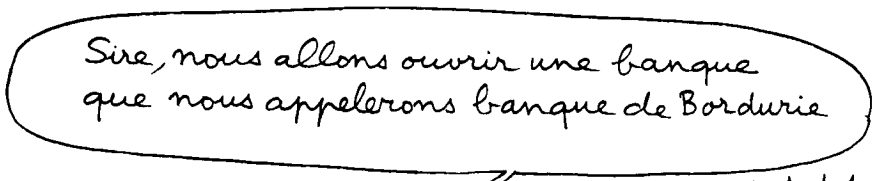 Sire, nous allons ouvrir une banque
que nous appelerons banque de Bordurie